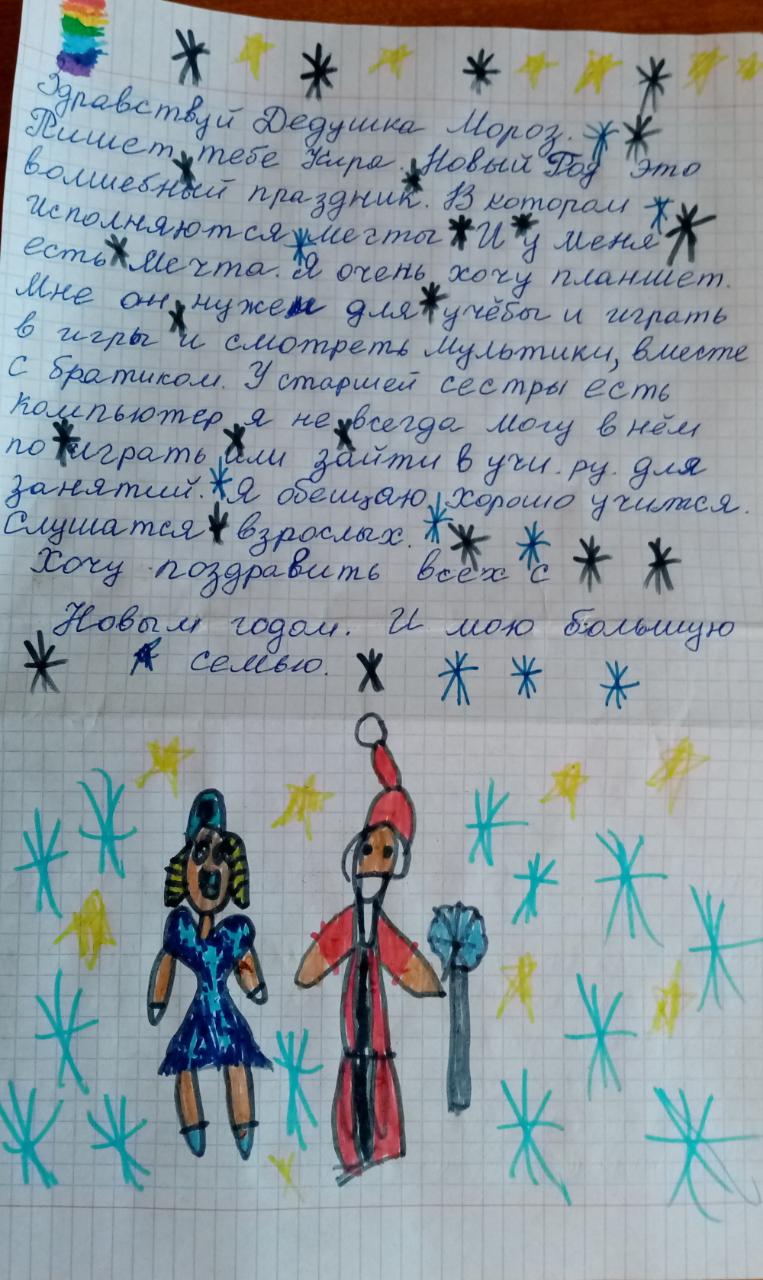 Здравствуй Дедушка Мороз.
Пишет тебе Кира. Новый Год это
волшебный праздник. В котором
исполняются мечты И у меня
есть мечта. Я очень хочу планшет.
Мне он нужен для учёбы и играть
в игры и смотреть мультики, вместе
с братиком. У старшей сестры есть
компьютер я не всегда могу в нём
по играть или зайти в учи.ру. для
занятий. Я обещаю хорошо учится.
Слушатся взрослых.
Хочу поздравить всех с
Новым годом. И мою большую
семью.